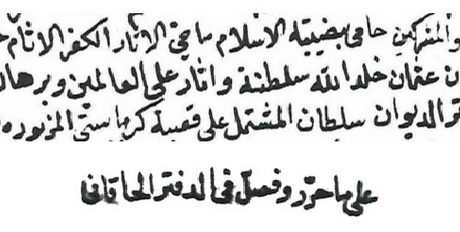 والمشركين حامي بيضة الاسلام ماحي الاثار الكفر الاثام
ن عثمان خلد الله سلطنة واثار على العالمين وبرهان
تر الديوان سلطان المشتمل على قصبة كرماستي المزبوره
على ما حرر وفصل في الدفتر الخاقاني